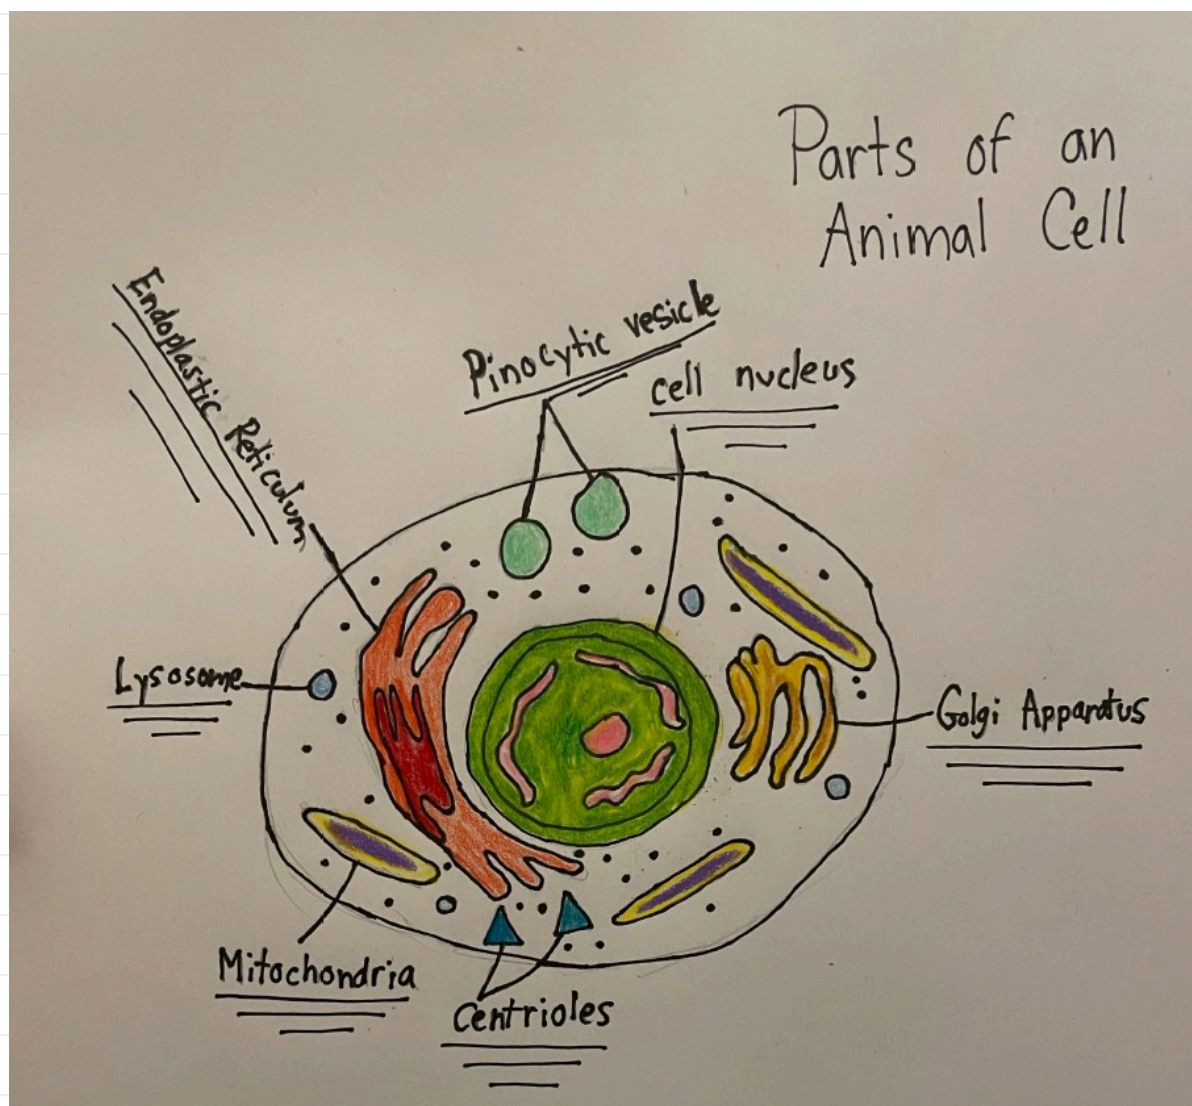 Parts of an
Animal Cell
Endoplastic Reticulum
Pinocytic vesicle
cell nucleus
Lysosome
Golgi Apparatus
Mitochondria
Centrioles